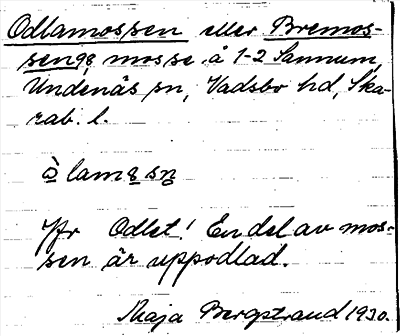 Odlamossen eller Bremos-
sen98, mosse å 1-2 Sannum,
Undenäs sn, Vadsbo hd, Ska-
rab. l.
ò lam8sn̥
Jfr Odlet! En del av mos-
sen är uppodlad.
Maja Bergstrand 1930.